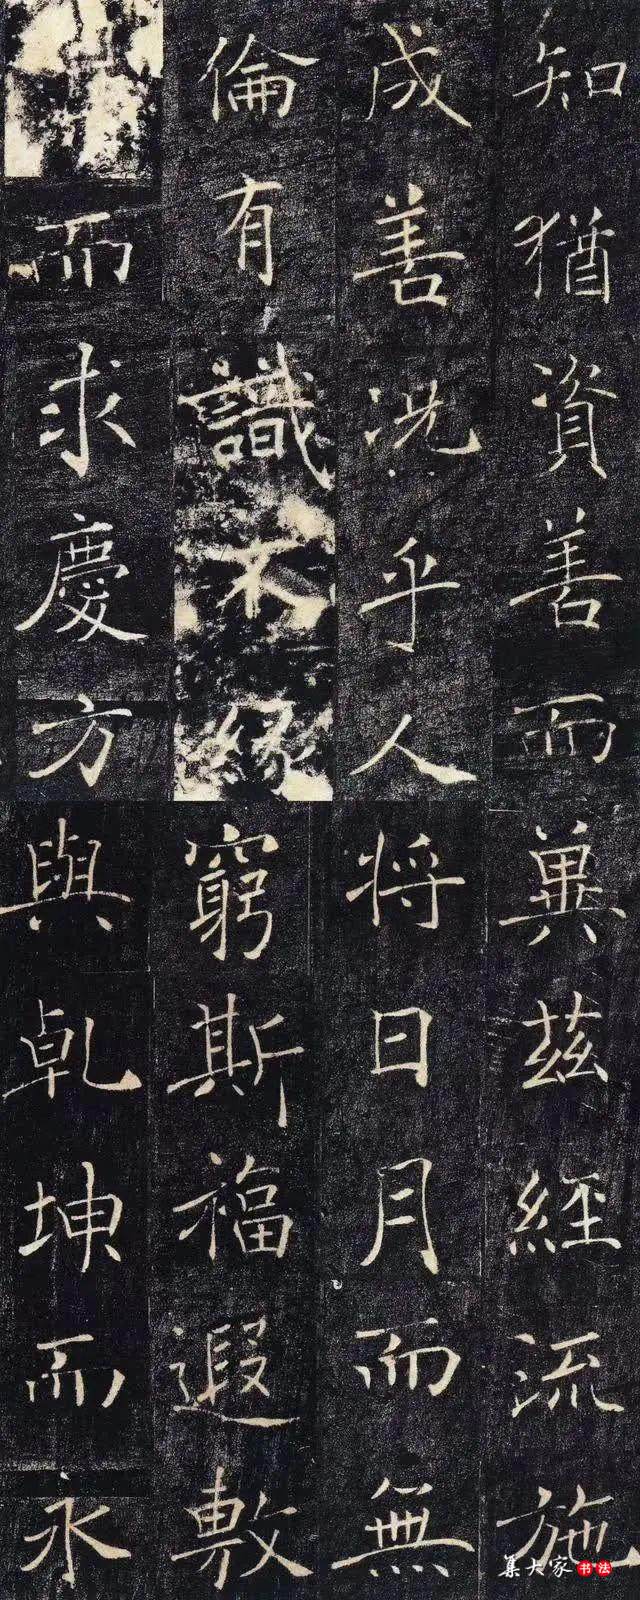 知猶資善而
成善況乎人
倫有識不緣
而求慶方
冀茲經流施
將日月而無
窮斯福遐敷
與乾坤而永
集大家书法